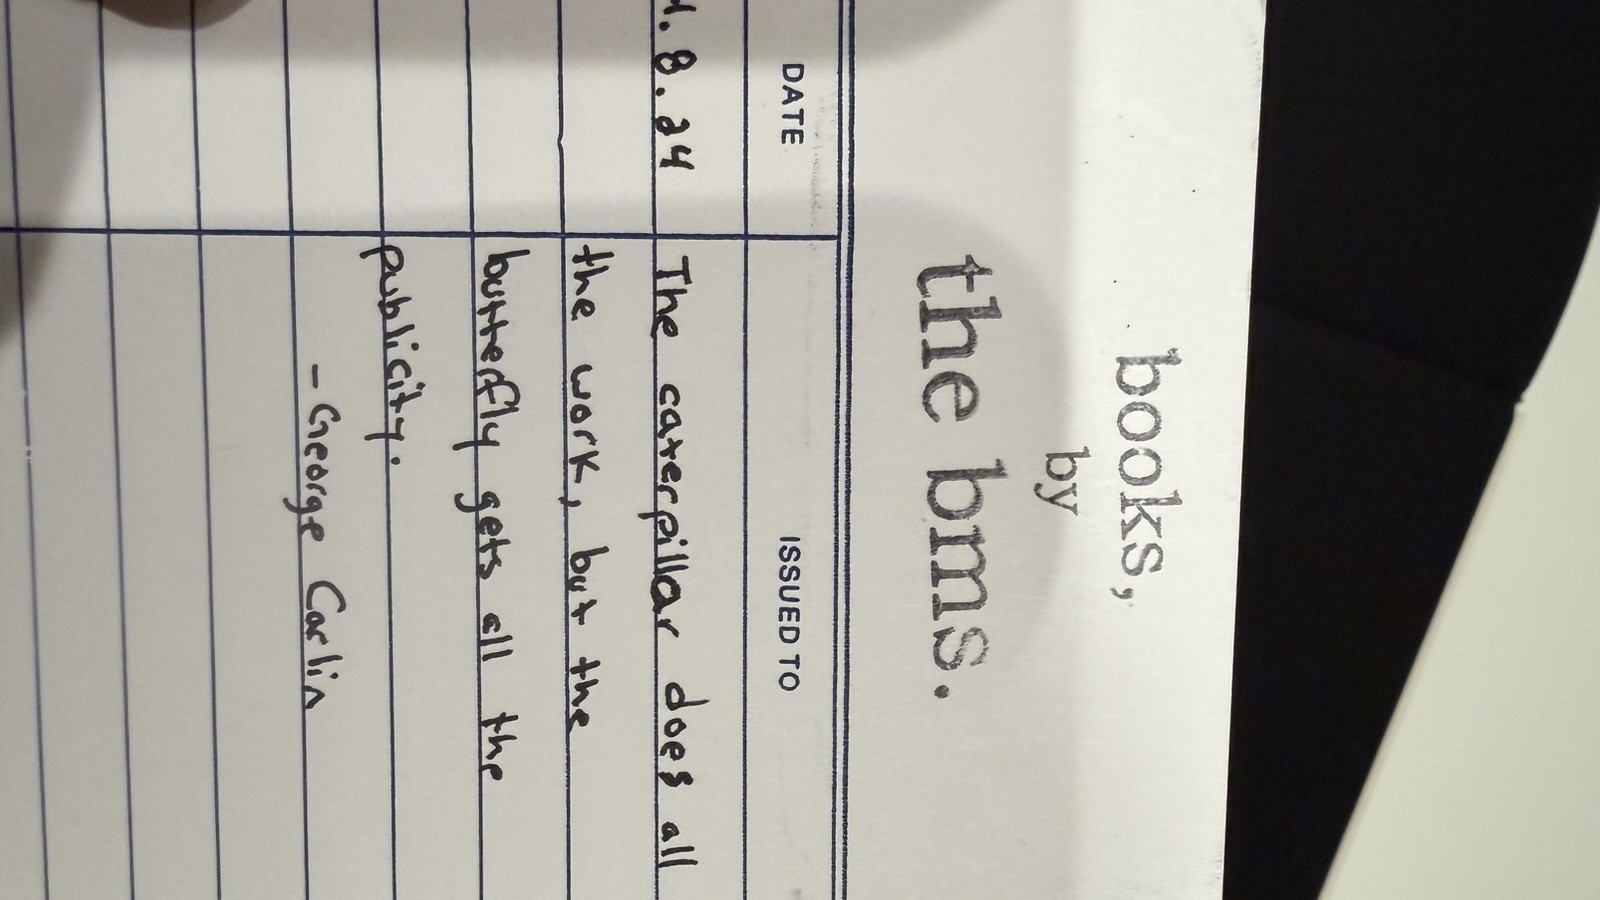 books,
by
the bms.
DATE ISSUED TO
4.8.24 The caterpillar does all
the work, but the
butterfly gets all the
publicity.
- George Carlin